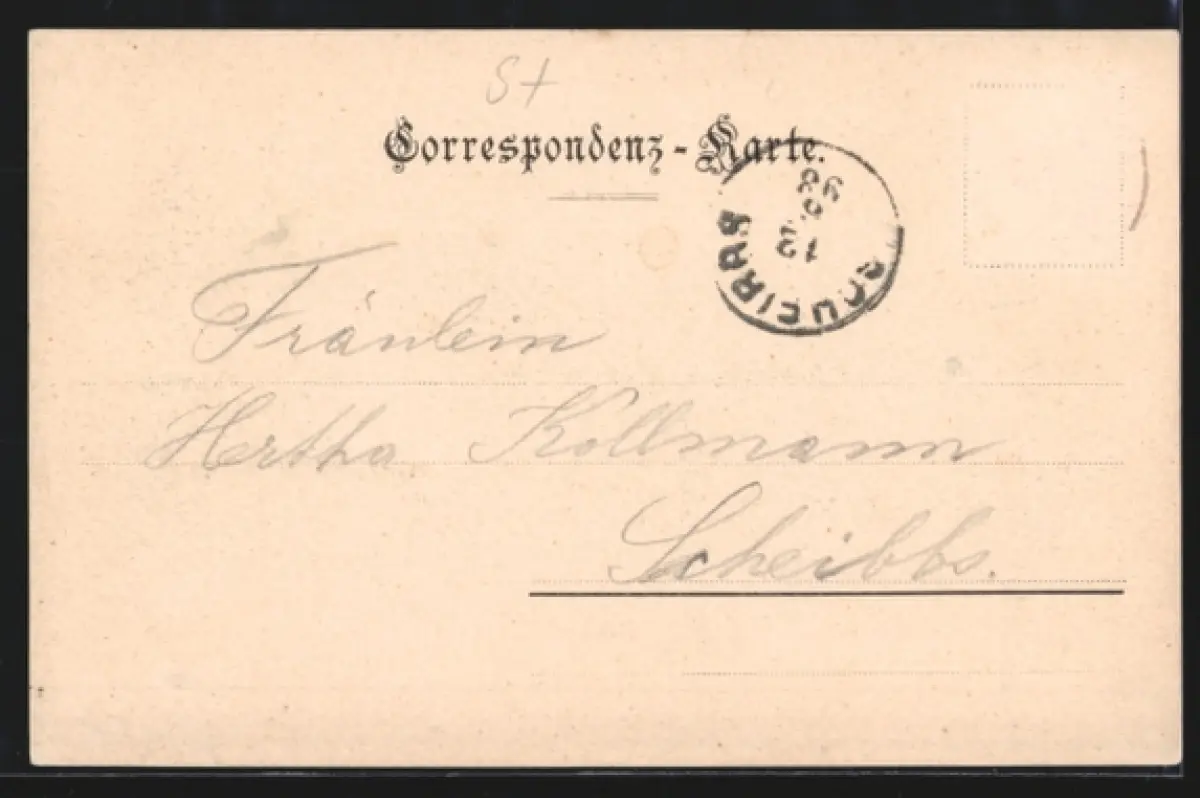 St
Correspondenz-Karte.
12
98
Fräulein
Hertha Kollmann
Scheibbs.